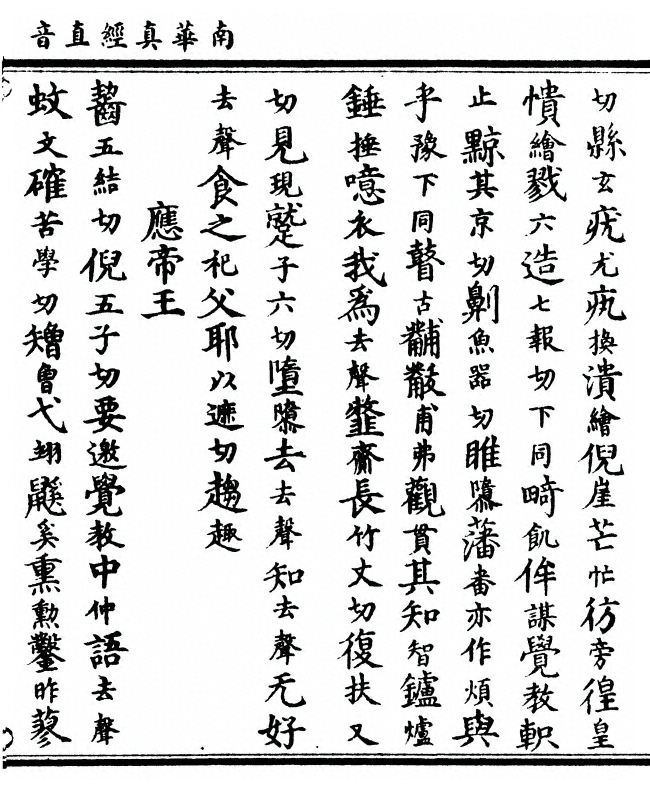 南華真經直音
切縣玄疣尤疻換潰繪倪崖芒忙彷旁徨皇
憒繪戮六造七報切下同畸飢侔謀覺教軹
止黥其京切劓魚器切睢隳藩畨亦作煩與
乎豫下同瞽古黼黻甫弗觀貫其知智鑪爐
錘捶噫衣我為去聲䪡齋長竹丈切復扶又
切見現蹵子六切墮隳去去聲知去聲无好
去聲食之祀父耶以遮切趨趣
應帝王
齧五結切倪五子切要邀覺教中仲語去聲
蚊文確苦學切矰曾弋翊鼷奚熏勲鑿昨蓼